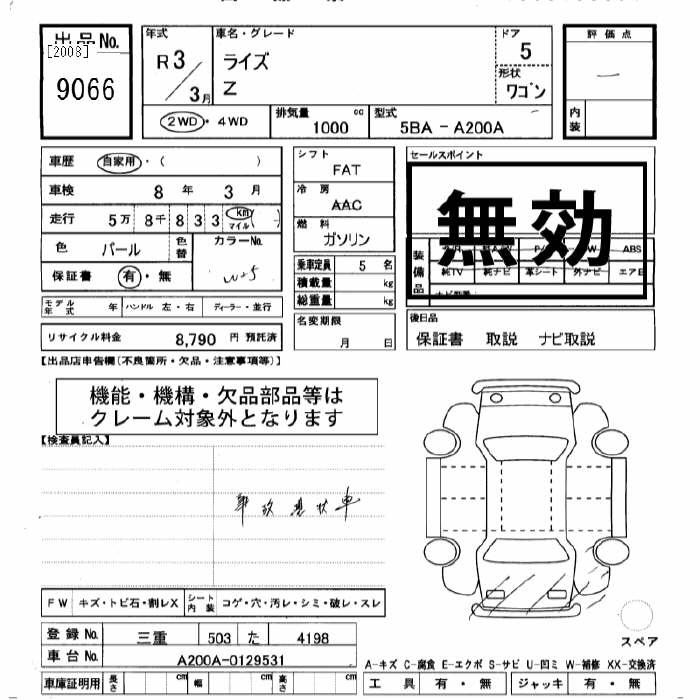 出品No.
[2008]
9066
年式
R3/3月
車名・グレード
ライズ
Z
ドア
5
形状
ワゴン
評価点
一
内装
2WD・4WD
排気量 cc
1000
型式
5BA - A200A
車歴 自家用・( )
車検 8年 3月
走行 5万8千833 (km マイル)
色 パール 色替 カラーNo. W25
保証書 有・無
モデル年式 年 ハンドル 左・右 ディーラー・並行
リサイクル料金 8,790 円 預託済
シフト
FAT
冷房
AAC
燃料
ガソリン
乗車定員 5 名
積載量 kg
総重量 kg
名変期限
月 日
セールスポイント
無効
装備品
ABS
純TV 純ナビ 革シート 外ナビ エアB
後日品
保証書 取説 ナビ取説
【出品店申告欄(不良箇所・欠品・注意事項等)】
機能・機構・欠品部品等は
クレーム対象外となります
【検査員記入】
事故現状車
FW キズ・トビ石・割レX シート内装 コゲ・穴・汚レ・シミ・破レ・スレ
登録No. 三重 503 た 4198
車台No. A200A-0129531
車庫証明用 長さ cm 幅 cm 高さ cm
スペア
A-キズ C-腐食 E-エクボ S-サビ U-凹ミ W-補修 XX-交換済
工具 有・無 ジャッキ 有・無